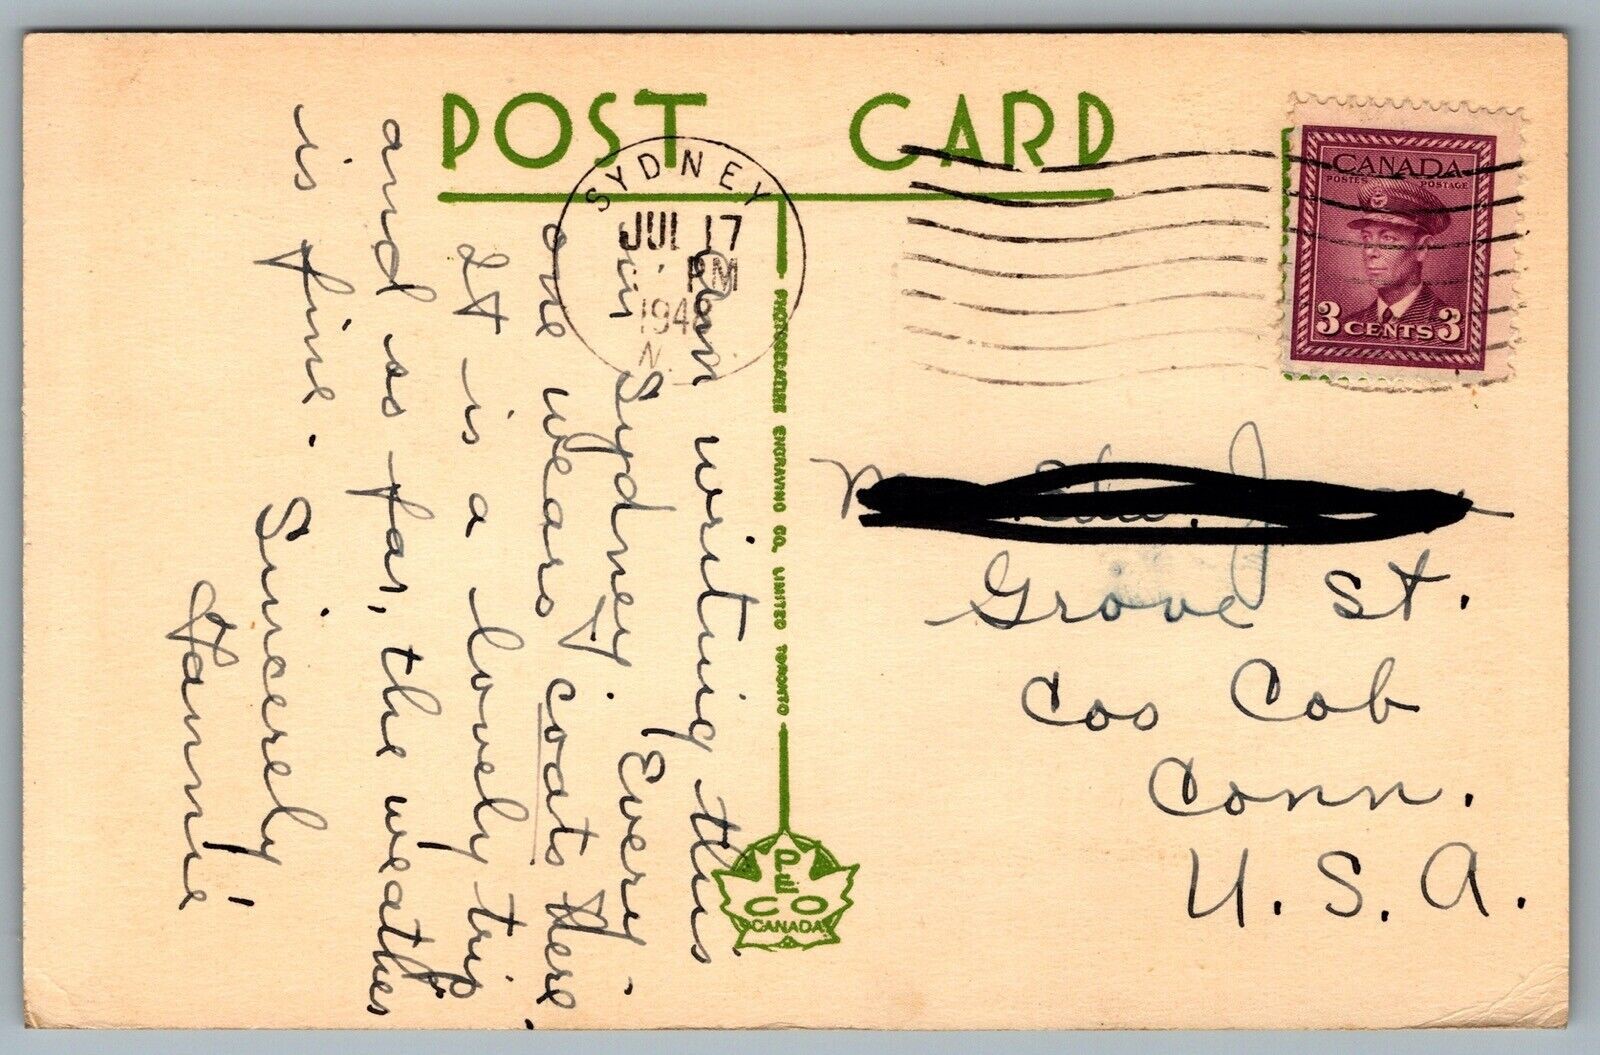 POST CARD
SYDNEY
JUL 17
PM
1948
N.
CANADA
POSTES POSTAGE
3 CENTS 3
am writing this
in Sydney. Every-
one wears coats here.
It is a lovely trip
and so far, the weather
is fine.
Sincerely
Fannie
PHOTOGELATINE ENGRAVING CO. LIMITED TORONTO
PECO
CANADA
Grove St.
Cos Cob
Conn.
U. S. A.